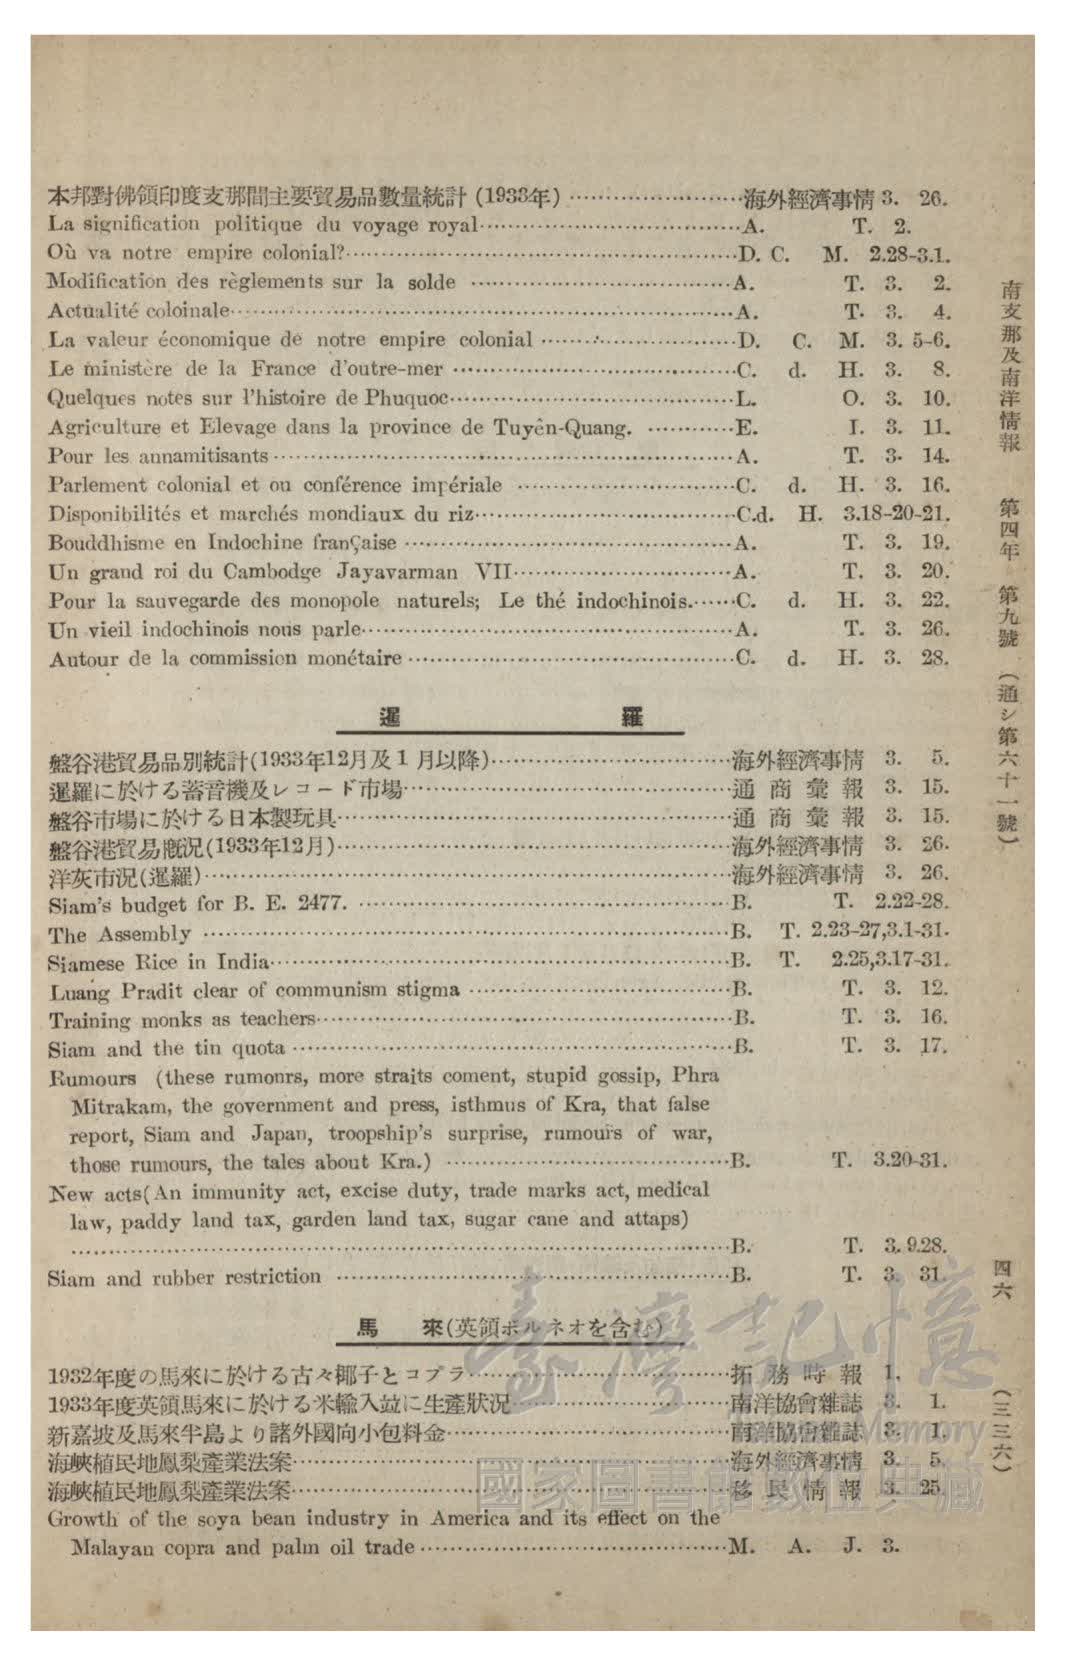 本邦對佛領印度支那間主要貿易品數量統計 (1933年) ……………………海外經濟事情 3. 26.
La signification politique du voyage royal……………………A. T. 2.
Où va notre empire colonial?……………………D. C. M. 2.28-3.1.
Modification des règlements sur la solde ……………………A. T. 3. 2.
Actualité coloinale……………………A. T. 3. 4.
La valeur économique de notre empire colonial ……………………D. C. M. 3. 5-6.
Le ministère de la France d'outre-mer ……………………C. d. H. 3. 8.
Quelques notes sur l'histoire de Phuquoc……………………L. O. 3. 10.
Agriculture et Elevage dans la province de Tuyên-Quang. …………E. I. 3. 11.
Pour les annamitisants……………………A. T. 3. 14.
Parlement colonial et ou conférence impériale ……………………C. d. H. 3. 16.
Disponibilités et marchés mondiaux du riz……………………C.d. H. 3.18-20-21.
Bouddhisme en Indochine franÇaise ……………………A. T. 3. 19.
Un grand roi du Cambodge Jayavarman VII……………………A. T. 3. 20.
Pour la sauvegarde des monopole naturels; Le thé indochinois.……C. d. H. 3. 22.
Un vieil indochinois nous parle……………………A. T. 3. 26.
Autour de la commission monétaire ……………………C. d. H. 3. 28.
暹 羅
盤谷港貿易品別統計(1933年12月及1月以降)……………………海外經濟事情 3. 5.
暹羅に於ける蓄音機及レコード市場……………………通商彙報 3. 15.
盤谷市場に於ける日本製玩具……………………通商彙報 3. 15.
盤谷港貿易槪況(1933年12月)……………………海外經濟事情 3. 26.
洋灰市況(暹羅)……………………海外經濟事情 3. 26.
Siam's budget for B. E. 2477. ……………………B. T. 2.22-28.
The Assembly ……………………B. T. 2.23-27,3.1-31.
Siamese Rice in India……………………B. T. 2.25,3.17-31.
Luang Pradit clear of communism stigma ……………………B. T. 3. 12.
Training monks as teachers……………………B. T. 3. 16.
Siam and the tin quota ……………………B. T. 3. 17.
Rumours (these rumonrs, more straits coment, stupid gossip, Phra
Mitrakam, the government and press, isthmus of Kra, that false
report, Siam and Japan, troopship's surprise, rumours of war,
those rumours, the tales about Kra.) ……………………B. T. 3.20-31.
New acts(An immunity act, excise duty, trade marks act, medical
law, paddy land tax, garden land tax, sugar cane and attaps)
……………………B. T. 3. 9.28.
Siam and rubber restriction ……………………B. T. 3. 31.
馬 來(英領ボルネオを含む)
1932年度の馬來に於ける古々椰子とコプラ……………………拓務時報 1.
1933年度英領馬來に於ける米輸入竝に生產狀況……………………南洋協會雜誌 3. 1.
新嘉坡及馬來半島より諸外國向小包料金……………………南洋協會雜誌 3. 1.
海峽植民地鳳梨產業法案……………………海外經濟事情 3. 5.
海峽植民地鳳梨產業法案……………………移民情報 3. 25.
Growth of the soya bean industry in America and its effect on the
Malayan copra and palm oil trade……………………M. A. J. 3.
南支那及南洋情報 第四年 第九號 (通シ第六十一號)
四六
(三三六)
臺灣記憶
Memory
國家圖書館數位典藏